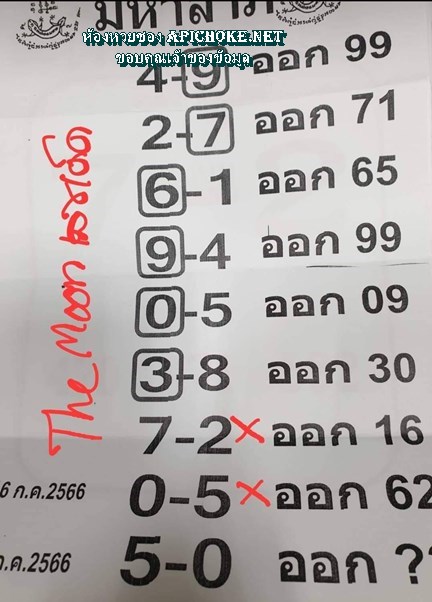 มหาลาภ
ห้องหวยซอง APICHOKE.NET
ขอบคุณเจ้าของข้อมูล
4-9 ออก 99
2-7 ออก 71
6-1 ออก 65
9-4 ออก 99
0-5 ออก 09
3-8 ออก 30
7-2 × ออก 16
6 ก.ค.2566 0-5 × ออก 62
ก.ค.2566 5-0 ออก ?
The Moon